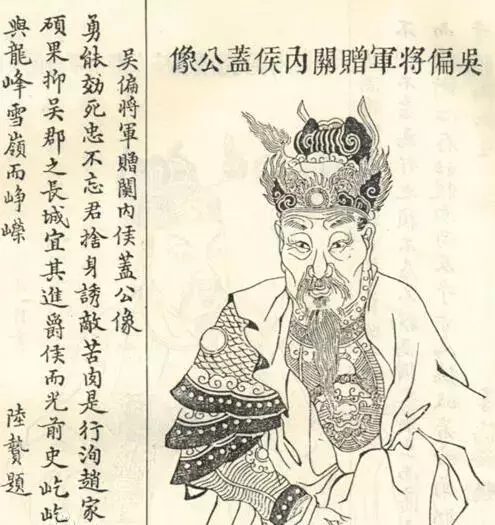 吳偏将軍贈關內侯蓋公像
吴偏將軍贈關内侯蓋公像
勇能効死忠不忘君捨身誘敵苦肉是行洵趙家
碩果抑吴郡之長城宜其進爵侯而光前史屹屹
與龍峰雪嶺而崢嶸
陸贄題